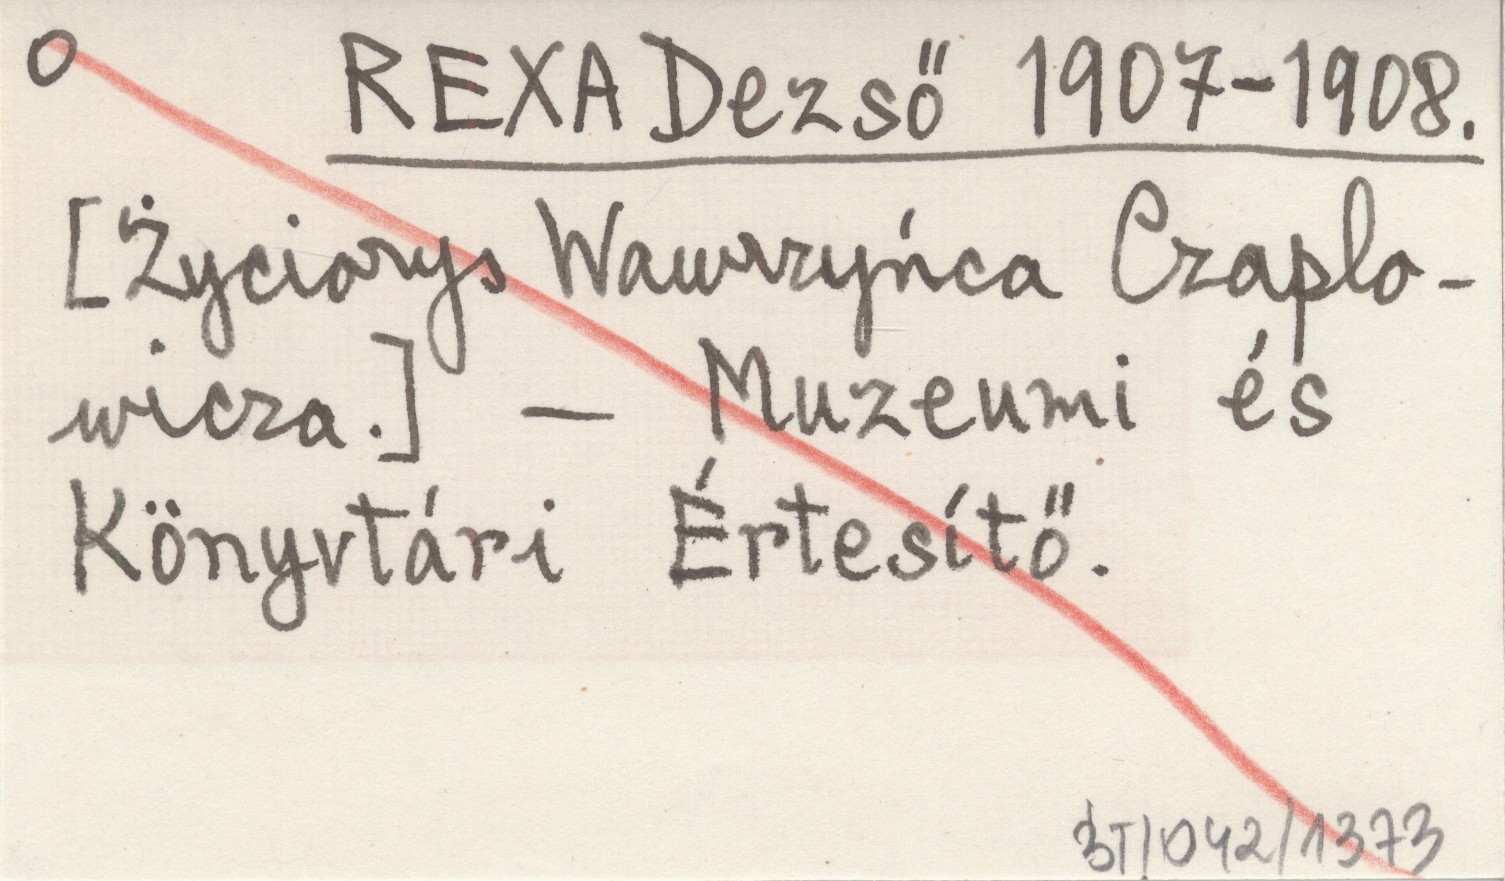 O REXA Dezső 1907-1908.
[Życiorys Wawrzyńca Czaplo-
wicza.] — Muzeumi és
Könyvtári Értesítő.
BT/042/1373